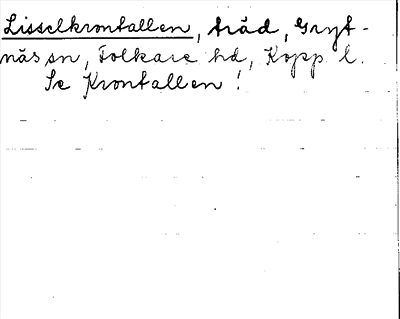 Lisselkrontallen, träd, Gryt-
näs sn, Folkare hd, Kopp l.
Se Krontallen!